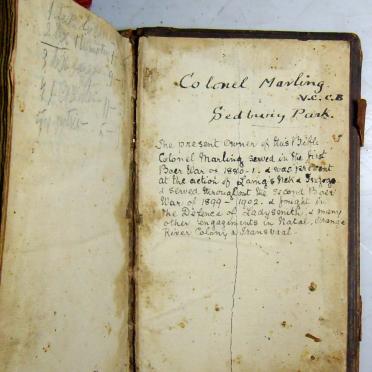 Colonel Marling.
V.C. C.B
Sedbury Park.
The present owner of this Bible
Colonel Marling served in the First
Boer War of 1880-1. & was present
at the action of Laing's Nek & Ingogo
& served throughout the Second Boer
War of 1899-1902. & fought in
the Defence of Ladysmith, & many
other engagements in Natal, Orange
River Colony & Transvaal.